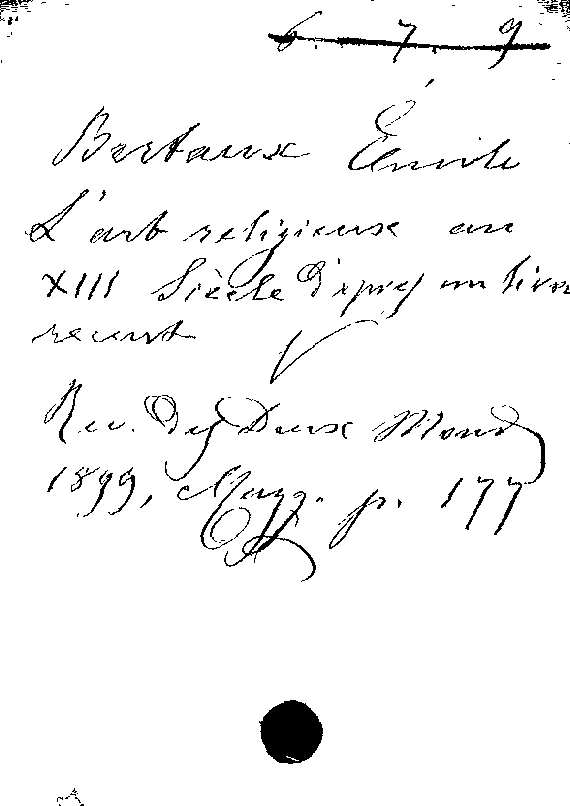 6. 7. 9
Bertaux Émile
L'art religieux au
XIII Siècle d'après un livre
recent
Rev. des Deux Mond
1899, Magg. p. 177